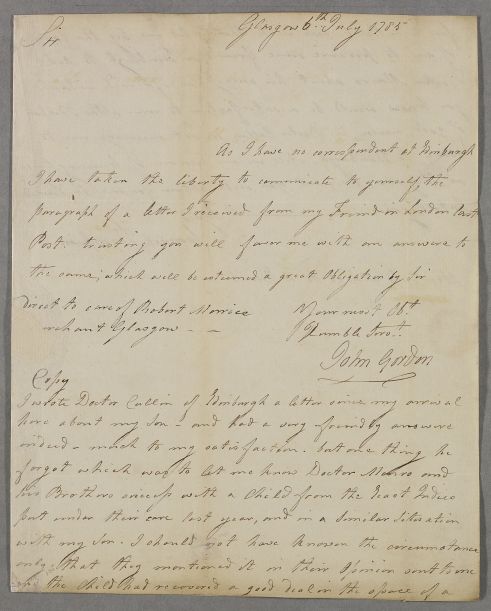 Sir
Glasgow 6th July 1785
As I have no correspondent at Edinburgh
I have taken the liberty to comunicate to yourself, the
paragraph of a letter I received from my Friend in London last
Post. trusting you will favor me with an answere to
the same; which will be esteemed a great Obligation by Sir
Direct to care of Robert Morrice
merchant Glasgow
Your most Obt
Humble Servt.
John Gordon
Copy
I wrote Doctor Cullin of Edinburgh a letter since my arrival
here about my Son - and had a very friendly answere
indeed - much to my satisfaction. but one thing he
forgot which was to let me know Doctor Munro and
his Brothers success with a Child from the East Indies
put under their care last year, and in a Similar Situation
with my Son. I should not have known the circumstance
only that they mentioned it in their Opinion sent home
the Child had recovered a good deal in the space of a